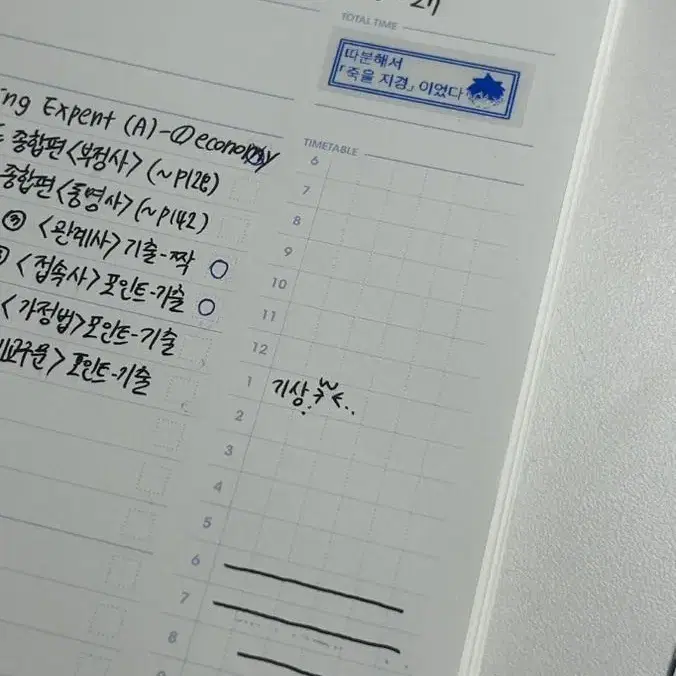 27
TOTAL TIME
따분해서
「죽을 지경」이었다
ing Expert (A)-①economy
종합편<부정사>(~p128)
종합편<동명사>(~p142)
③ <관계사>기출-짝
<접속사>포인트-기출
<가정법>포인트-기출
포인트-기출
TIMETABLE
6
7
8
9
10
11
12
1 기상
2
3
4
5
6
7
8
9